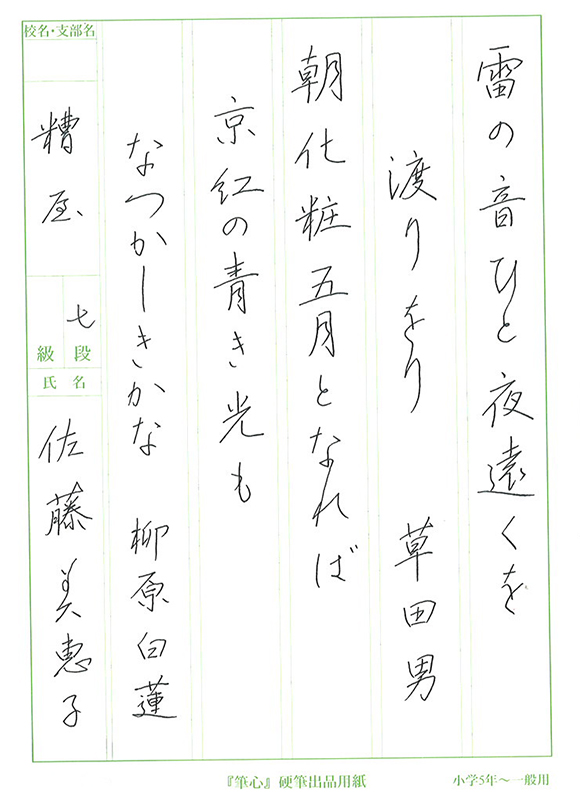 雷の音ひと夜遠くを
渡りをり 草田男
朝化粧五月となれば
京紅の青き光も
なつかしきかな 柳原白蓮
校名・支部名
糟屋
七段
級
氏名
佐藤美恵子
『筆心』硬筆出品用紙
小学5年〜一般用